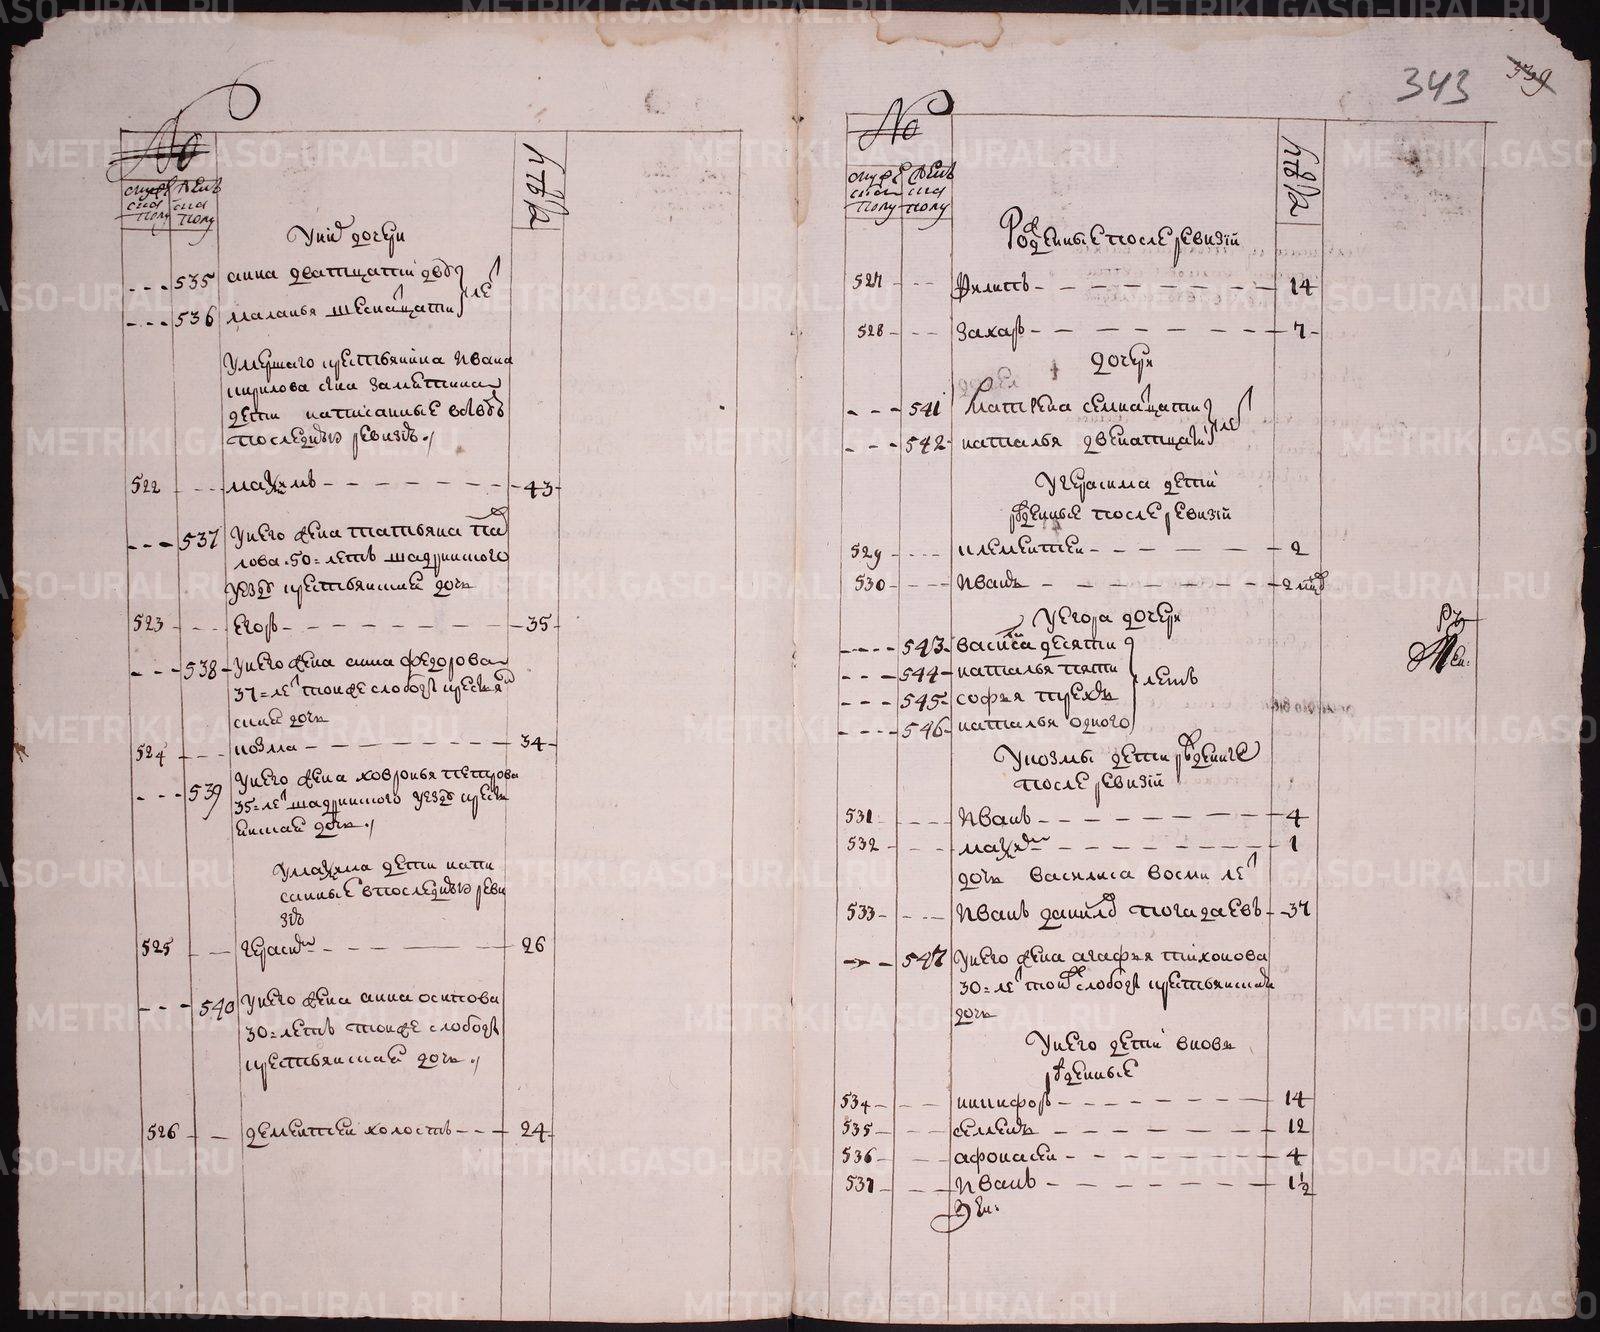 343
339
№
мужеска полу
женска полу
лѣта
У нихъ дочери
535 анна дватцати дву
536 маланья шеснатцати
лет
Умершаго крестьянина Ивана
кирилова сна Заметкина
дети написанные въ
последнюю ревизию
522 максимъ 43
537 У него жена татьяна пав
лова 50 летъ шадринского
уезду крестьянская дочь
523 Егоръ 35
538 У него жена анна федорова
37 лет той же слободы крестьян
ская дочь
524 козма 34
539 У него жена ховронья петрова
35 лет шадринского уезду кресть
енская дочь
У максима дети напи
санные в последнюю реви
зию
525 герасимъ 26
540 У него жена анна осипова
30 летъ той же слободы
крестьянская дочь
526 дементей холостъ 24
№
мужеска полу
женска полу
лѣта
Рожденные после ревизїи
527 Филипъ 14
528 Захаръ 7
дочери
541 матрена семнатцати
542 наталья двенатцати
лет
У герасима дети
рожденные после ревизїи
529 клементей 2
530 Иванъ 2 нед
У егора дочери
543 василиса десяти
544 наталья пяти
545 софья трехъ
546 наталья одного
летъ
У козмы дети рожденные
после ревизїи
531 Иванъ 4
532 максимъ 1
дочь василиса восми лет
533 Иванъ данилов погадаевъ 37
547 У него жена агафья тихонова
30 лет той же слободы крестьянская
дочь
У него дети вновь
рожденные
534 никифоръ 14
535 семенъ 12
536 афонасей 4
537 Иванъ 1½